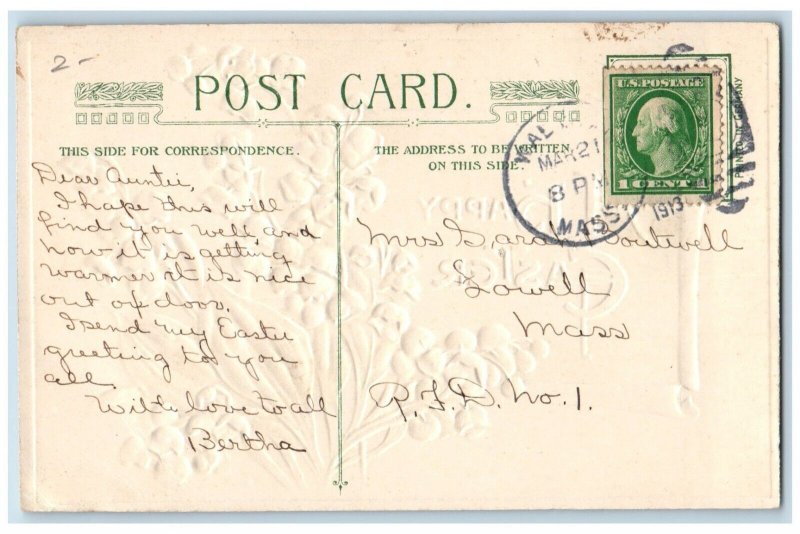 2-
POST CARD.
THIS SIDE FOR CORRESPONDENCE.
THE ADDRESS TO BE WRITTEN
ON THIS SIDE.
Dear Auntie,
I hope this will
find you well and
now it is getting
warmer it is nice
out of door.
I send my Easter
greeting to you
all.
With love to all
Bertha
U.S. POSTAGE
1 CENT 1
MAR 21
8 P
MASS
1913
PRINTED IN GERMANY
Mrs Sarah Boutwell
Lowell
Mass
R.F.D. No. 1.
HAPPY
EASTER